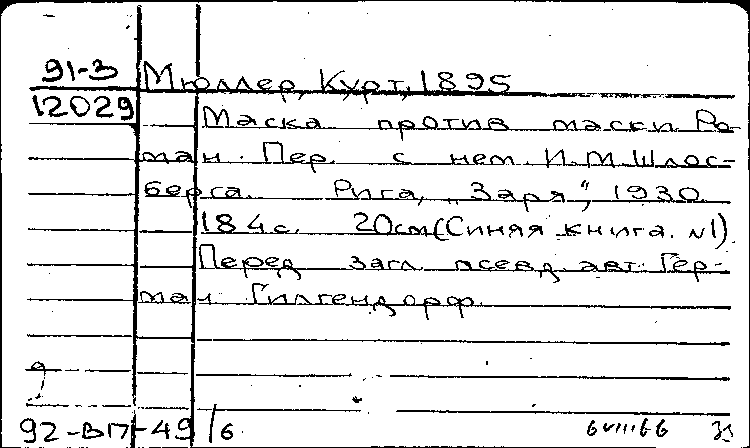 91-3 Мюллер, Курт, 1895
12029 Маска против маски. Ро-
ман. Пер. с нем. И.М.Шлос-
берга. Рига, „Заря“, 1930.
184с. 20см(Синяя книга. №1).
Перед загл. псевд. авт. Гер-
ман Гилгендорф.
92-ВП-49/6 6 VIII 66